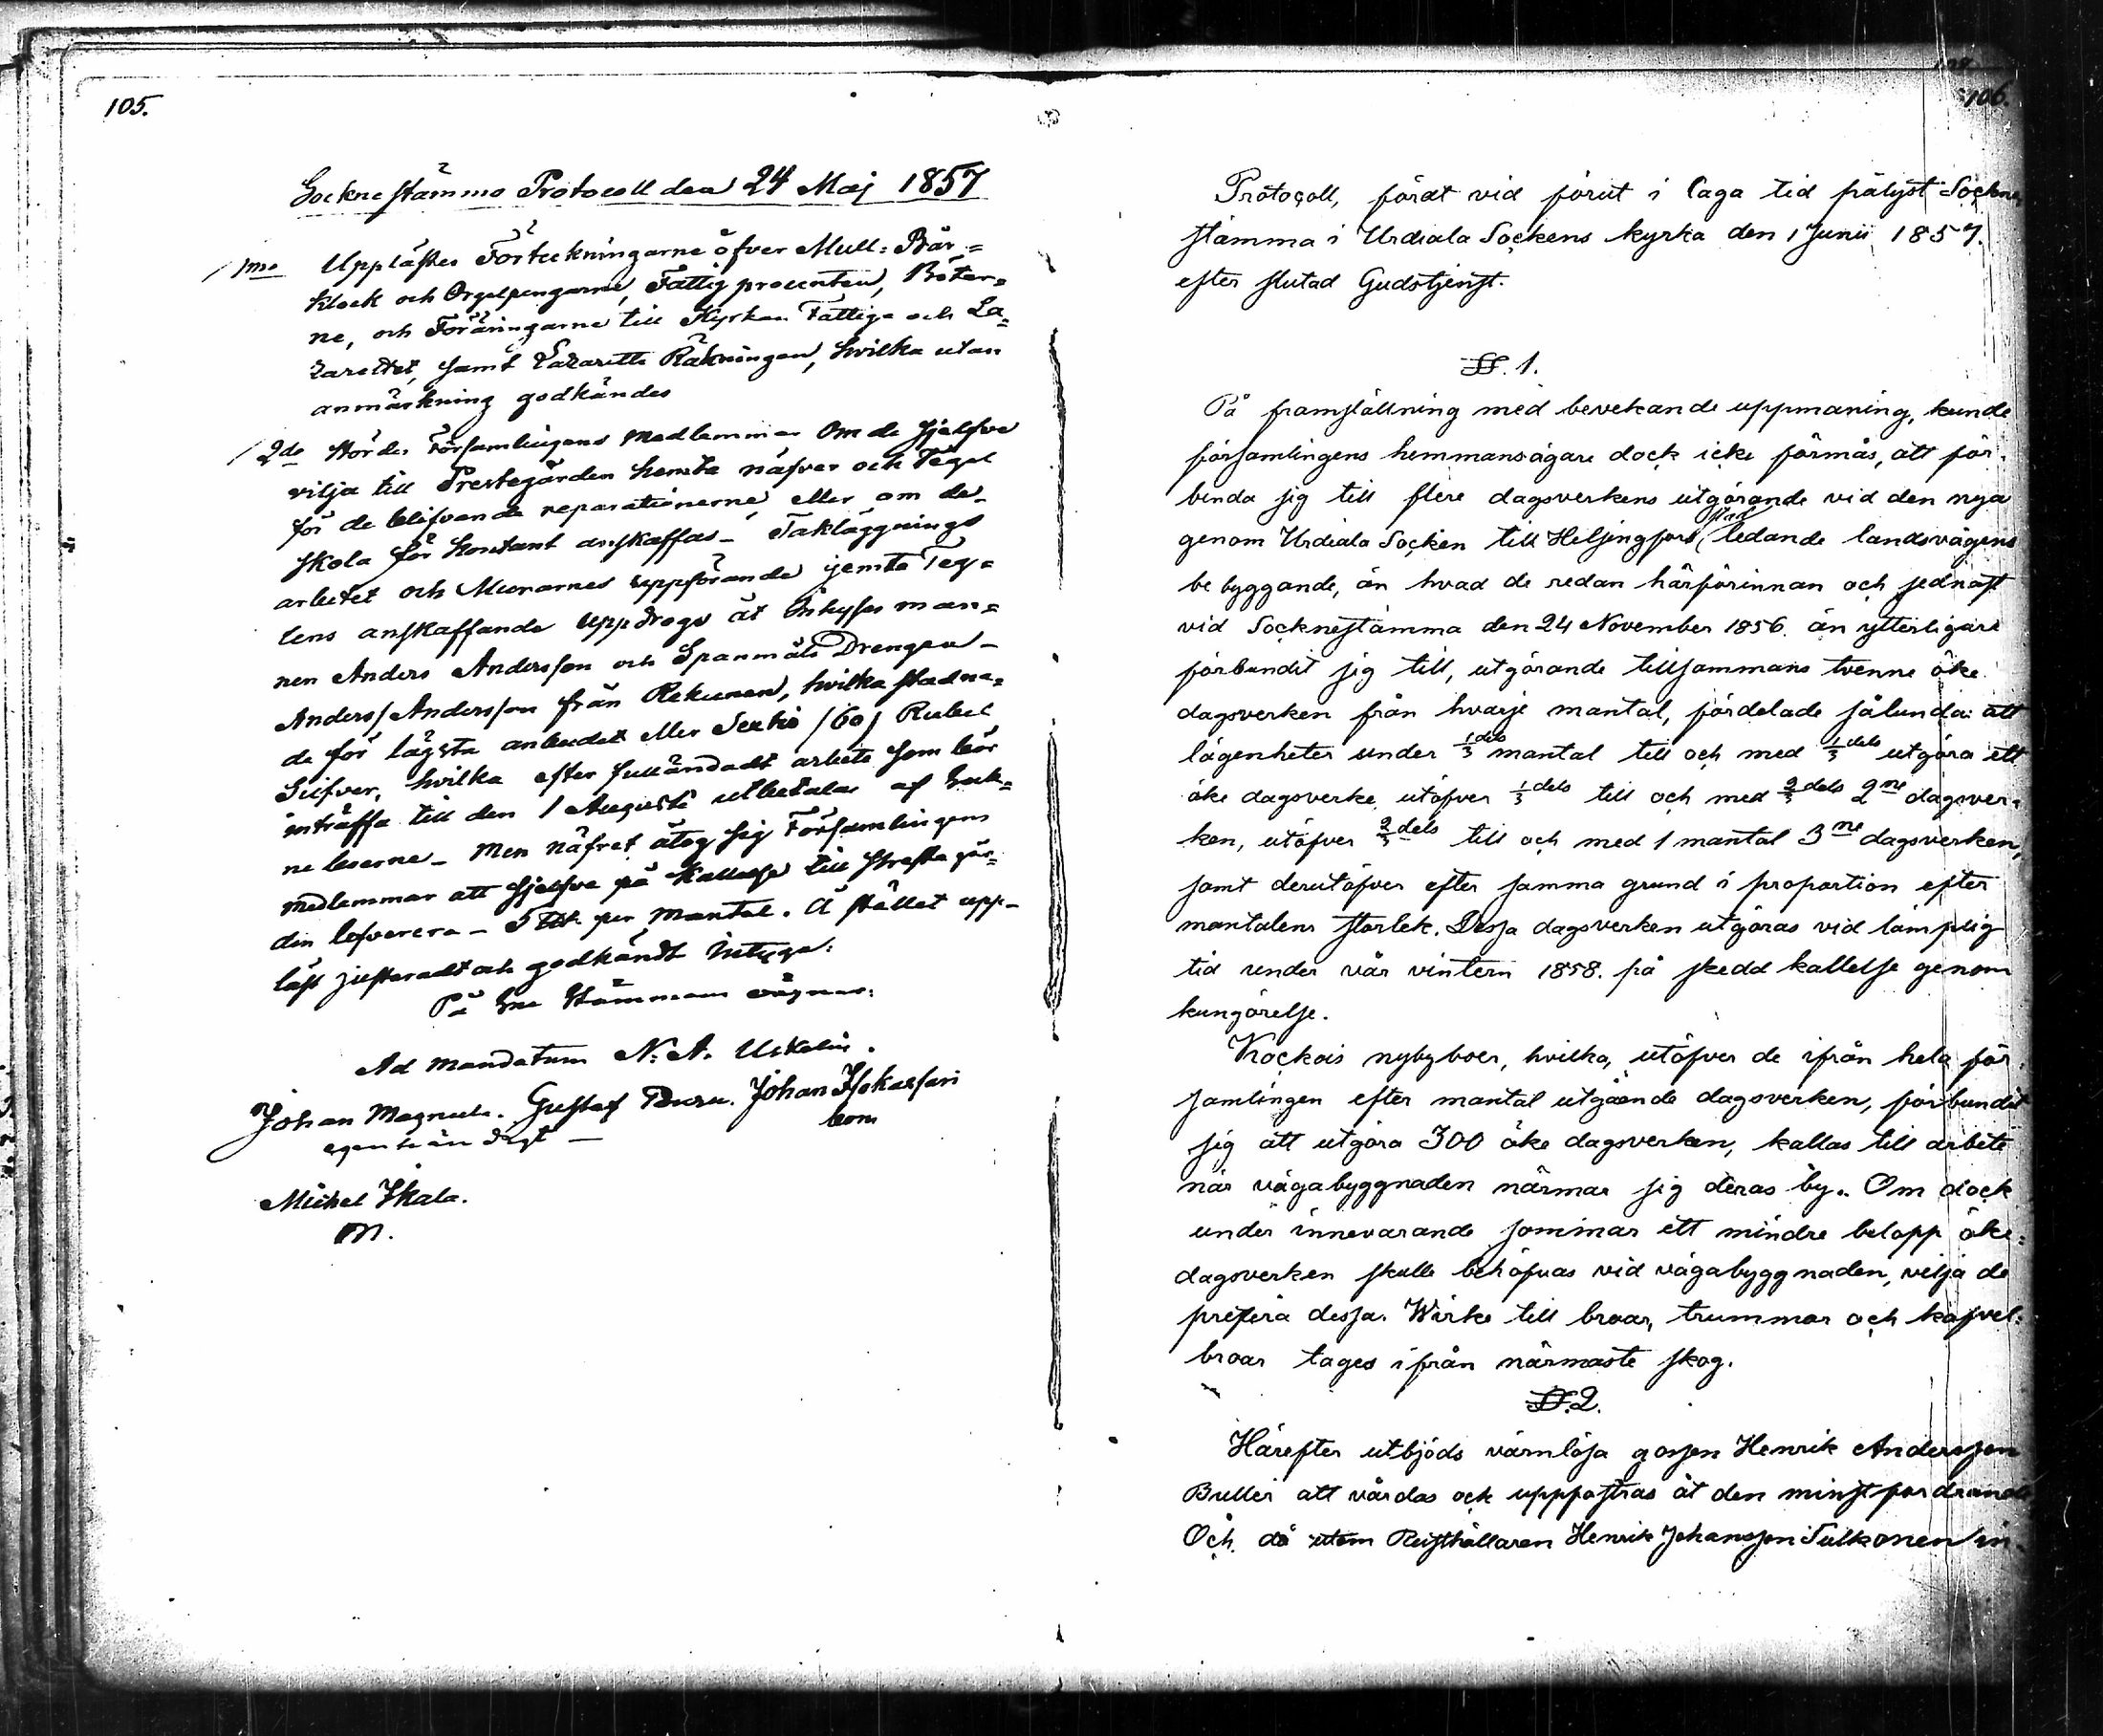 105.
Sockne stämmo Protocoll den 24 Maj 1857
1mo Uppläster Förteckningarne öfver Mull: Bår,=
Klock och Orgelpengarne, Fattig procenten, Böter=
ne, och Föräringarne till Kyrkan Fattige och La=
zarettet, samt Lazaretts Räkningen, hvilka utan
anmärkning godkändes
2do Hördes Församlingens medlemmar Om de sjelfve
vilja till Prestegården hemta näfver och Tegel
för de blifvande reparationerne, eller om de
skola för Kontant anskaffas – Takläggnings
arbetet och Murarnes uppförande jemte Teg=
lens anskaffande uppdrogs åt Inhyses man=
nen Anders Andersson och Spanmåls Drengen –
Anders Andersson från Rekunen, hvilka stadna=
de för lägsta anbudet eller Sextio /60/ Rubel
Silfver, hvilka efter fulländadt arbete som bör
inträffa till den 1 Augusti utbetalas af Sock=
ne
medlemmar att sjelfve på Kallelse till Prestegår=
den lefverera – 5 per Mantal. Å stället upp-
läst justeradt och godkändt intyga:
På Sockne Stämmans vägnar:
Ad mandatum N. A.
Johan Magnula. Gustaf Johan Isokaefari
egenhändigt – bom
Michel Skala.
m.
106.
Protocoll, fördt vid förut i laga tid pålyst Sockne
stämma i Urdiala Sockens kyrka den 1 Junii 1857.
efter slutad Gudstjenst.
§. 1.
På framställning med bevekande uppmaning, kunde
församlingens hemmansägare dock icke förmås, att för-
binda sig till flere dagsverkens utgörande vid den nya
genom Urdiala Socken till Helsingfors stad ledande landsvägens
be byggande, än hvad de redan härförinnan och sednast
vid Socknestämma den 24 November 1856. än ytterligare
förbundit sig till, utgörande tillsammans tvenne öke
dagsverken från hvarje mantal, fördelade sålunda: att
lägenheter under 1/3 dels mantal till och med 1/3 dels utgöra ett
öke dagsverke, utöfver 1/3 dels till och med 2/3 dels 2ne dagsver=
ken, utöfver 2/3 dels till och med 1 mantal 3ne dagsverken,
samt derutöfver efter samma grund i proportion efter
mantalens storlek. Dessa dagsverken utgöras vid lämplig
tid under vår vintern 1858. på skedd kallelse genom
kungörelse.
Kockois nybyboer, hvilka, utöfver de ifrån hela för-
samlingen efter mantal utgående dagsverken, förbundit
sig att utgöra 300 öke dagsverken, kallas till arbete
när vägabyggnaden närmar sig deras by. Om dock
under innevarande sommar ett mindre belopp öke=
dagsverken skulle behöfvas vid vägabyggnaden, vilja de
prestera dessa. Wirke till broar, trummor och kafvel=
broar tages ifrån närmaste skog.
§. 2.
Härefter utbjöds värnlösa gossen Henrik Andersson
Bulleri att vårdas och uppfostras åt den minst fordrande
Och då utom Rusthållaren Henrik Johansson Sulkonen in-